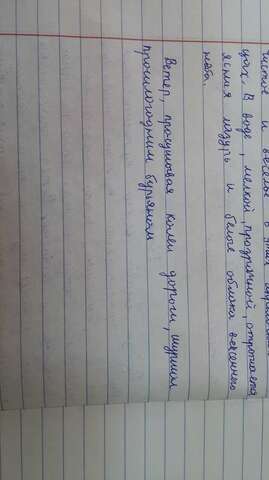 и веселое в этих
цах. В воде, мелкой, прозрачной, отражается
ясная лазурь и белые облака весеннего
неба.
Ветер, просушивая колеи дороги, шуршал
прошлогодним бурьяном